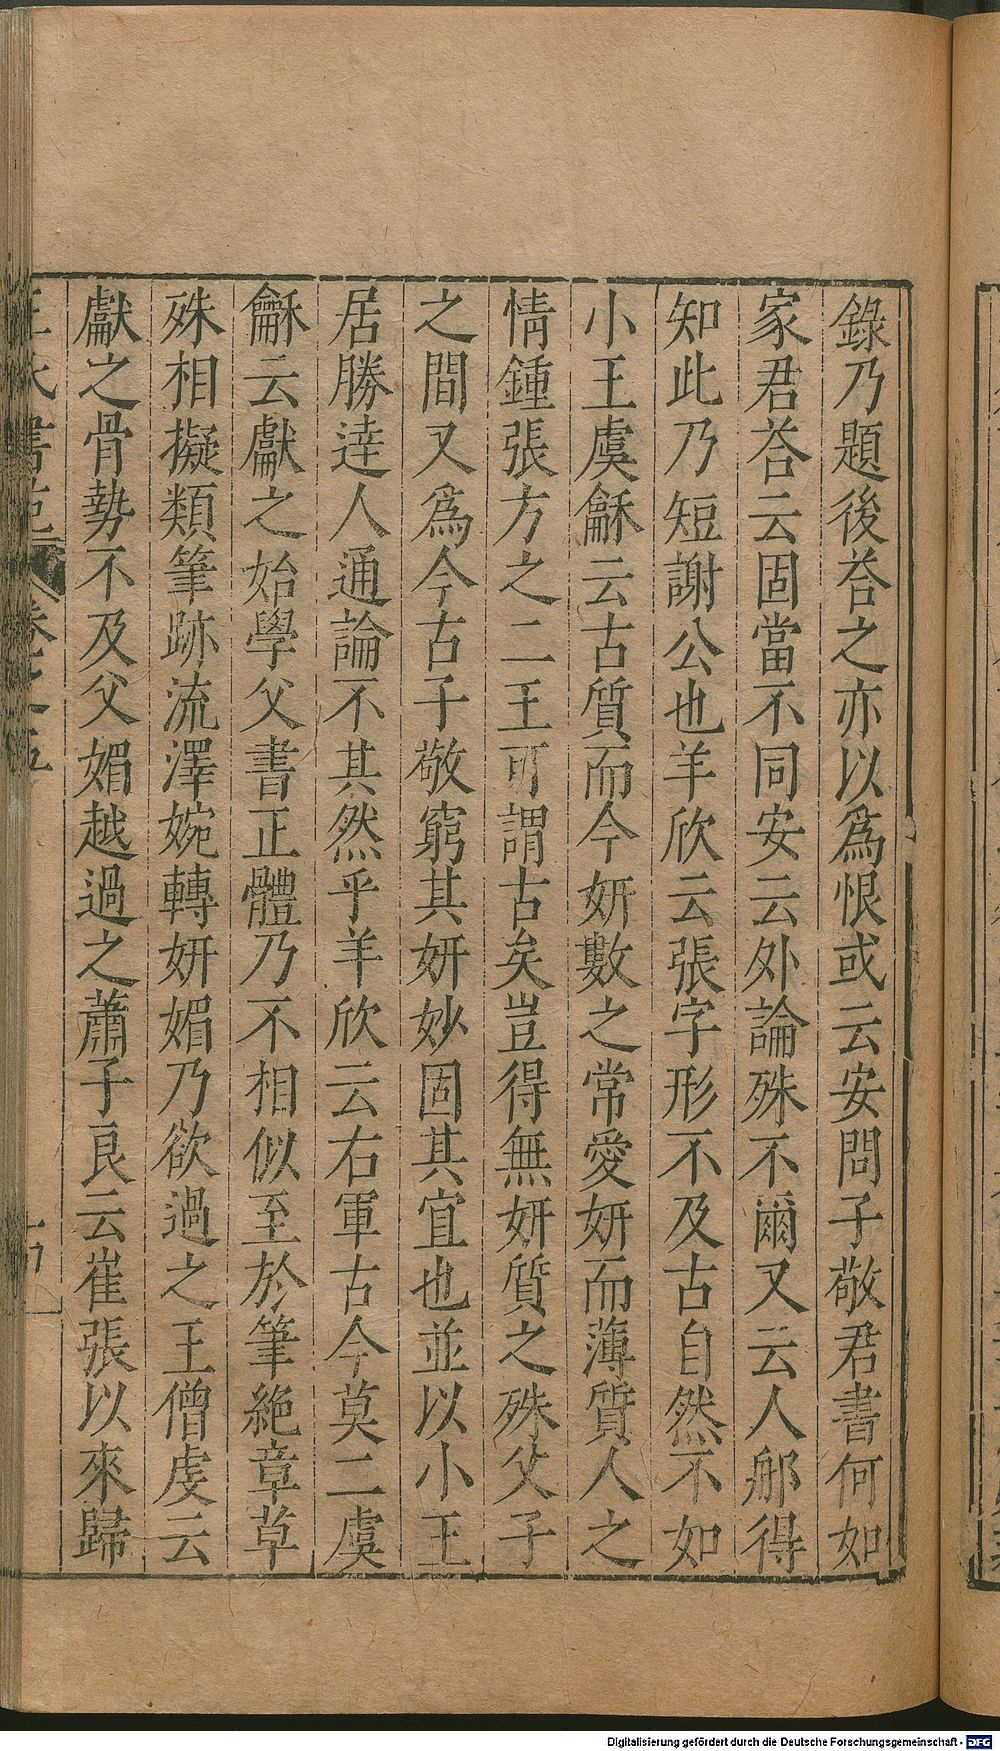 錄乃題後荅之亦以爲恨或云安問子敬君書何如
家君荅云固當不同安云外論殊不爾又云人郍得
知此乃短謝公也羊欣云張字形不及古自然不如
小王虞龢云古質而今妍數之常愛妍而薄質人之
情鍾張方之二王可謂古矣豈得無妍質之殊父子
之間又爲今古子敬窮其妍妙固其宜也並以小王
居勝逹人通論不其然乎羊欣云右軍古今莫二虞
龢云獻之始學父書正體乃不相似至於筆絶章草
殊相擬類筆跡流澤婉轉妍媚乃欲過之王僧虔云
獻之骨勢不及父媚越過之蕭子良云崔張以來歸
王氏書苑 卷之五
Digitalisierung gefördert durch die Deutsche Forschungsgemeinschaft - DFG